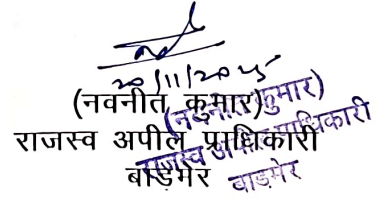 20/11/2025
(नवनीत कुमार)
राजस्व अपील प्राधिकारी
बाड़मेर
(नवनीत कुमार)
राजस्व अपील प्राधिकारी
बाड़मेर